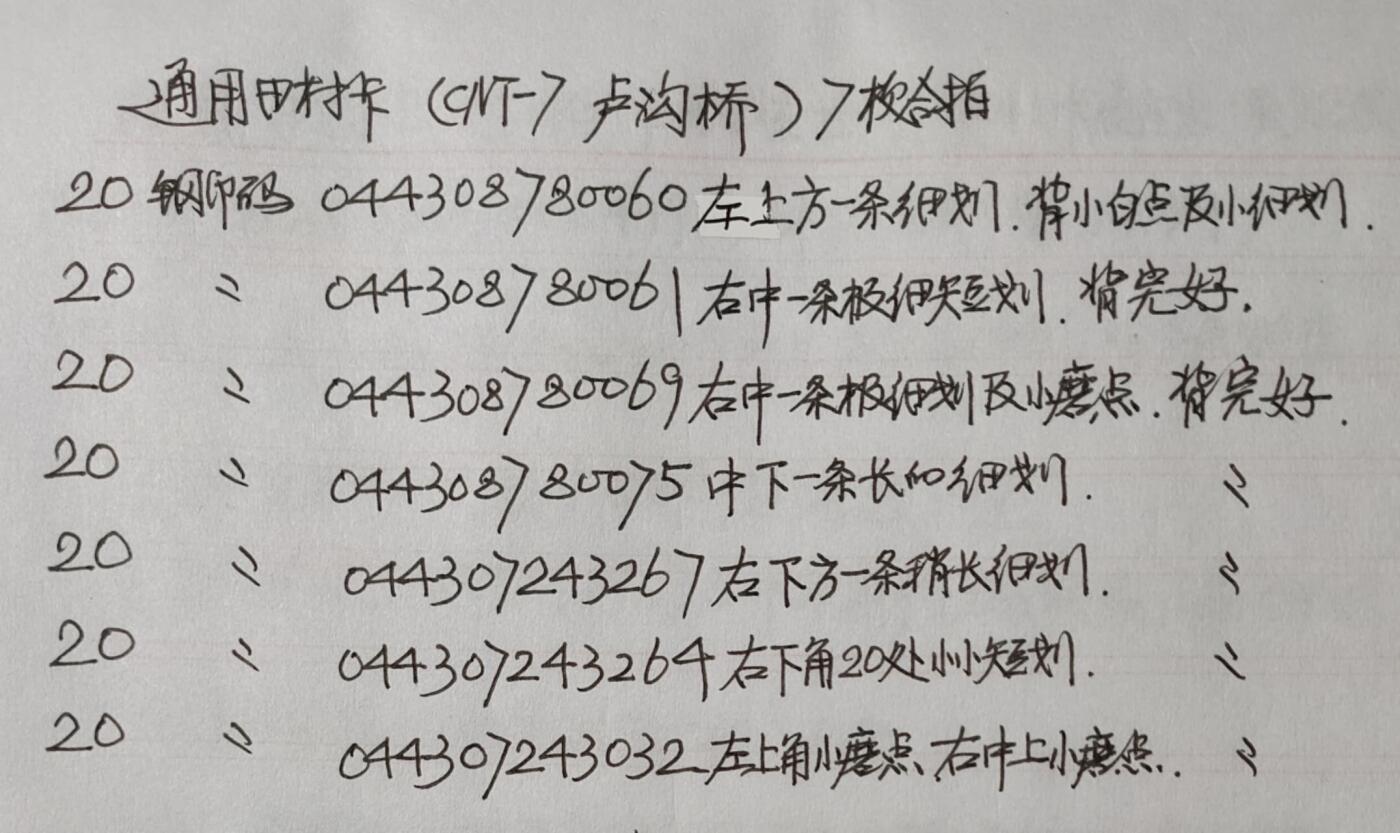 通用田村卡（CNT-7 卢沟桥）7枚合拍
20 钢印码 044308780060 左上方一条细划.背小白点及小细划.
20 〃 044308780061 右中一条极细短划.背完好.
20 〃 044308780069 右中一条极细划及小磨点.背完好.
20 〃 044308780075 中下一条长的细划. 〃
20 〃 044307243267 右下方一条稍长细划. 〃
20 〃 044307243264 右下角20处小小短划. 〃
20 〃 044307243032 左上角小磨点.右中上小磨点. 〃